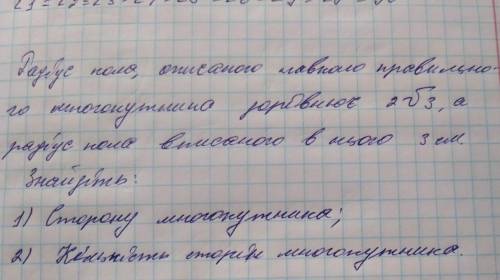 Радіус кола, описаного навколо правильно-
го многокутника дорівнює 2√3, а
радіус кола вписаного в нього 3 см.
Знайдіть:
1) Сторону многокутника;
2) Кількість сторін многокутника.